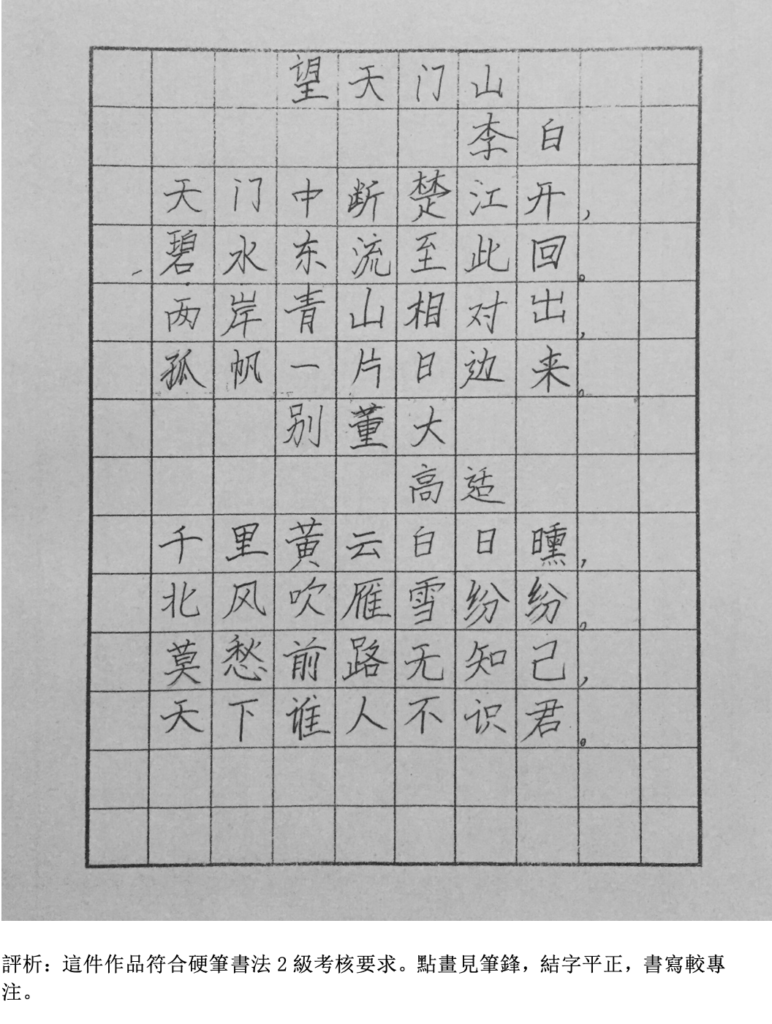 望天门山
李白
天门中断楚江开，
碧水东流至此回。
两岸青山相对出，
孤帆一片日边来。
别董大
高适
千里黄云白日曛，
北风吹雁雪纷纷。
莫愁前路无知己，
天下谁人不识君。
評析：這件作品符合硬筆書法2級考核要求。點畫見筆鋒，結字平正，書寫較專
注。